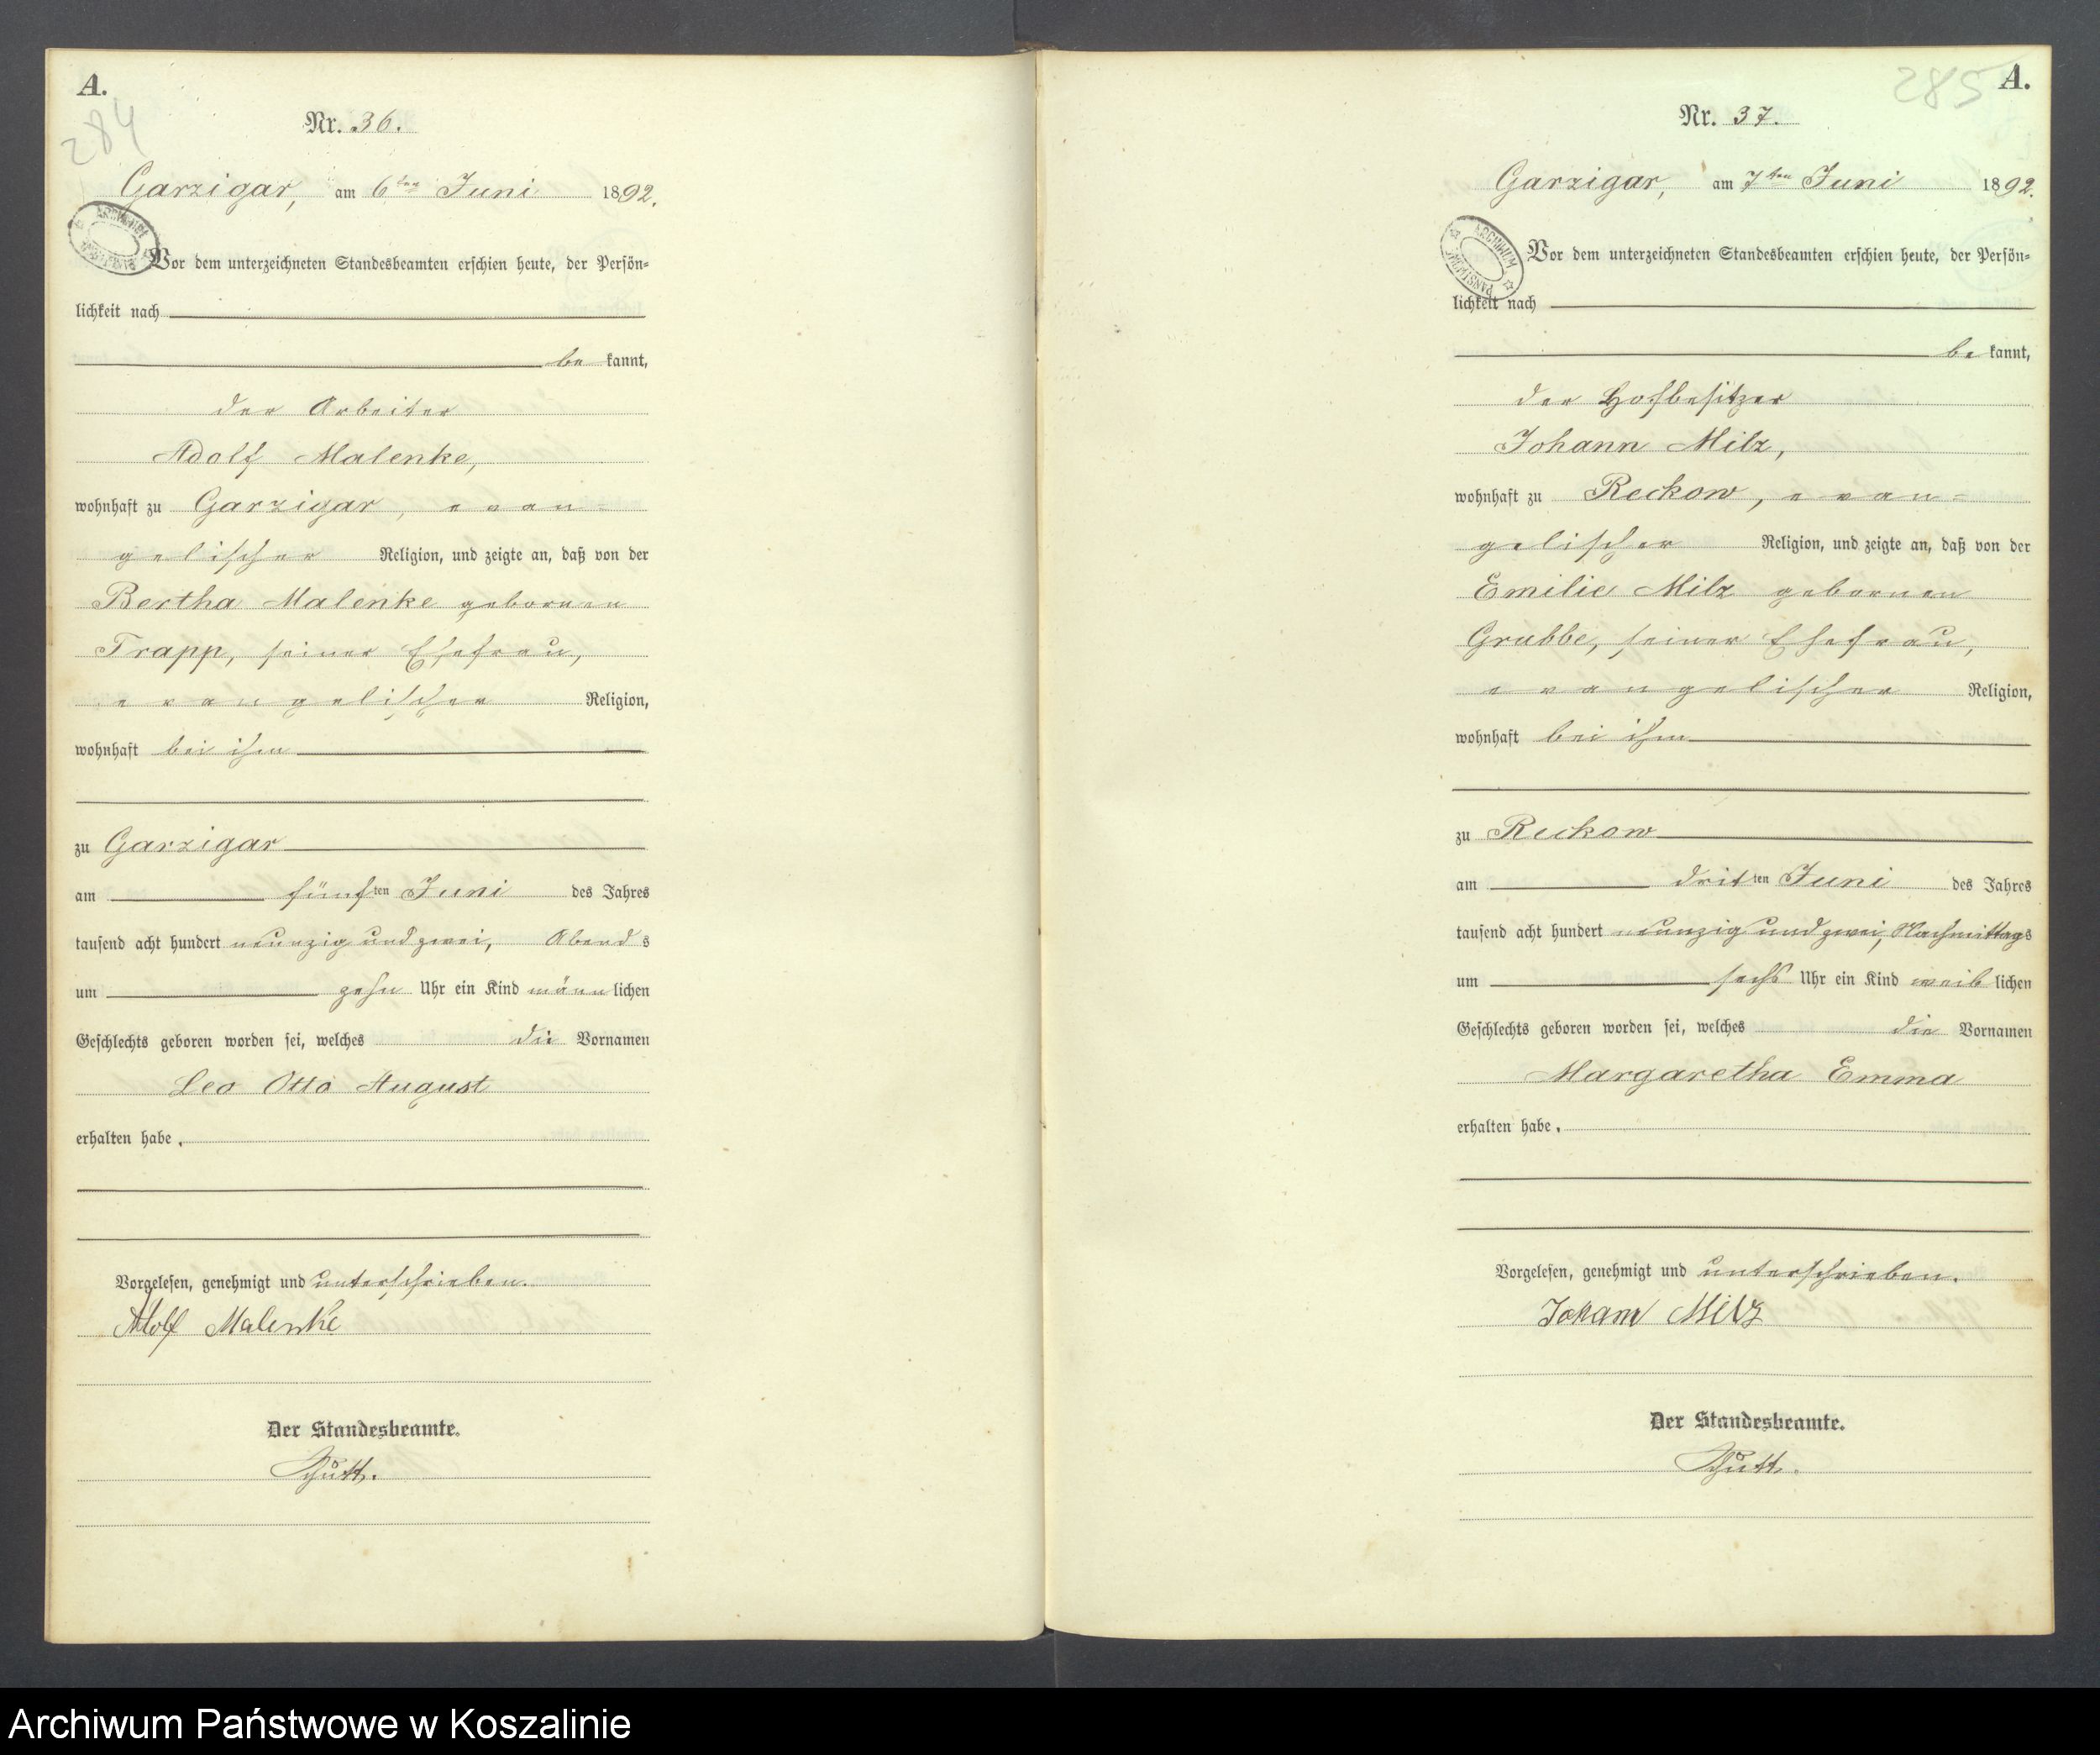 A.
284
Nr. 36.
Garzigar, am 6ten Juni 1892.
ARCHIWUM PAŃSTWOWE
Vor dem unterzeichneten Standesbeamten erschien heute, der Persön-
lichkeit nach
be kannt,
der Arbeiter
Adolf Malenke,
wohnhaft zu Garzigar, evan-
gelischer Religion, und zeigte an, daß von der
Bertha Malenke gebornen
Trapp, seiner Ehefrau,
evangelischer Religion,
wohnhaft bei ihm
zu Garzigar
am fünften Juni des Jahres
tausend acht hundert neunzig und zwei, Abends
um zehn Uhr ein Kind männlichen
Geschlechts geboren worden sei, welches die Vornamen
Leo Otto August
erhalten habe.
Vorgelesen, genehmigt und unterschrieben.
Adolf Malenke
Der Standesbeamte.
Schütt.
285 A.
Nr. 37.
Garzigar, am 7ten Juni 1892.
ARCHIWUM PAŃSTWOWE
Vor dem unterzeichneten Standesbeamten erschien heute, der Persön-
lichkeit nach
be kannt,
der Hofbesitzer
Johann Milz,
wohnhaft zu Reckow, evan-
gelischer Religion, und zeigte an, daß von der
Emilie Milz gebornen
Grubbe, seiner Ehefrau,
evangelischer Religion,
wohnhaft bei ihm
zu Reckow
am dritten Juni des Jahres
tausend acht hundert neunzig und zwei, Nachmittags
um sechs Uhr ein Kind weiblichen
Geschlechts geboren worden sei, welches die Vornamen
Margaretha Emma
erhalten habe.
Vorgelesen, genehmigt und unterschrieben.
Johann Milz
Der Standesbeamte.
Schütt.
Archiwum Państwowe w Koszalinie